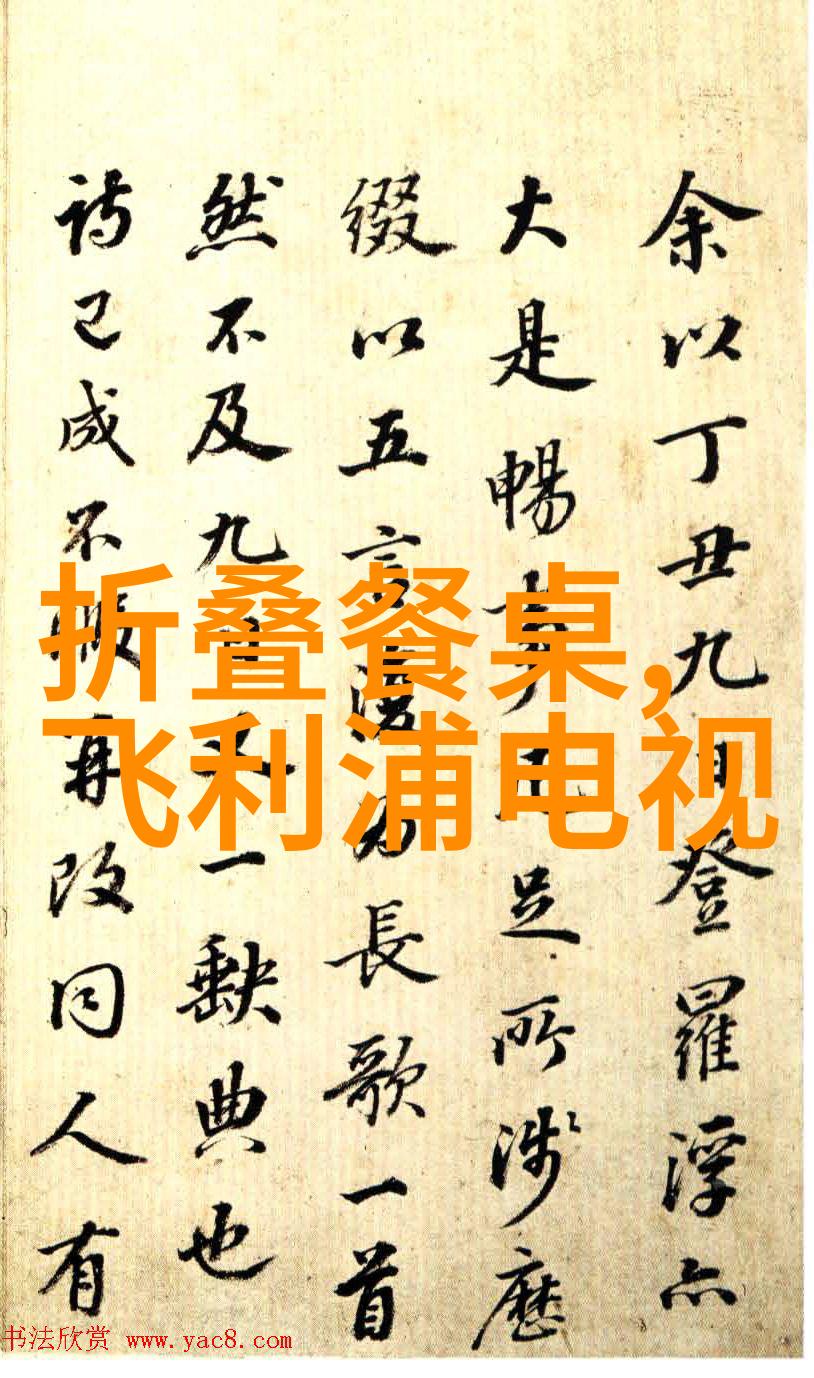 余以丁丑九月登羅浮亦
大是暢事足所涉歷
綴以五言為長歌一首
然不及九一缺典也
詩已成不暇再改同人有
折叠餐桌,
飞利浦电视
书法欣赏 www.yac8.com